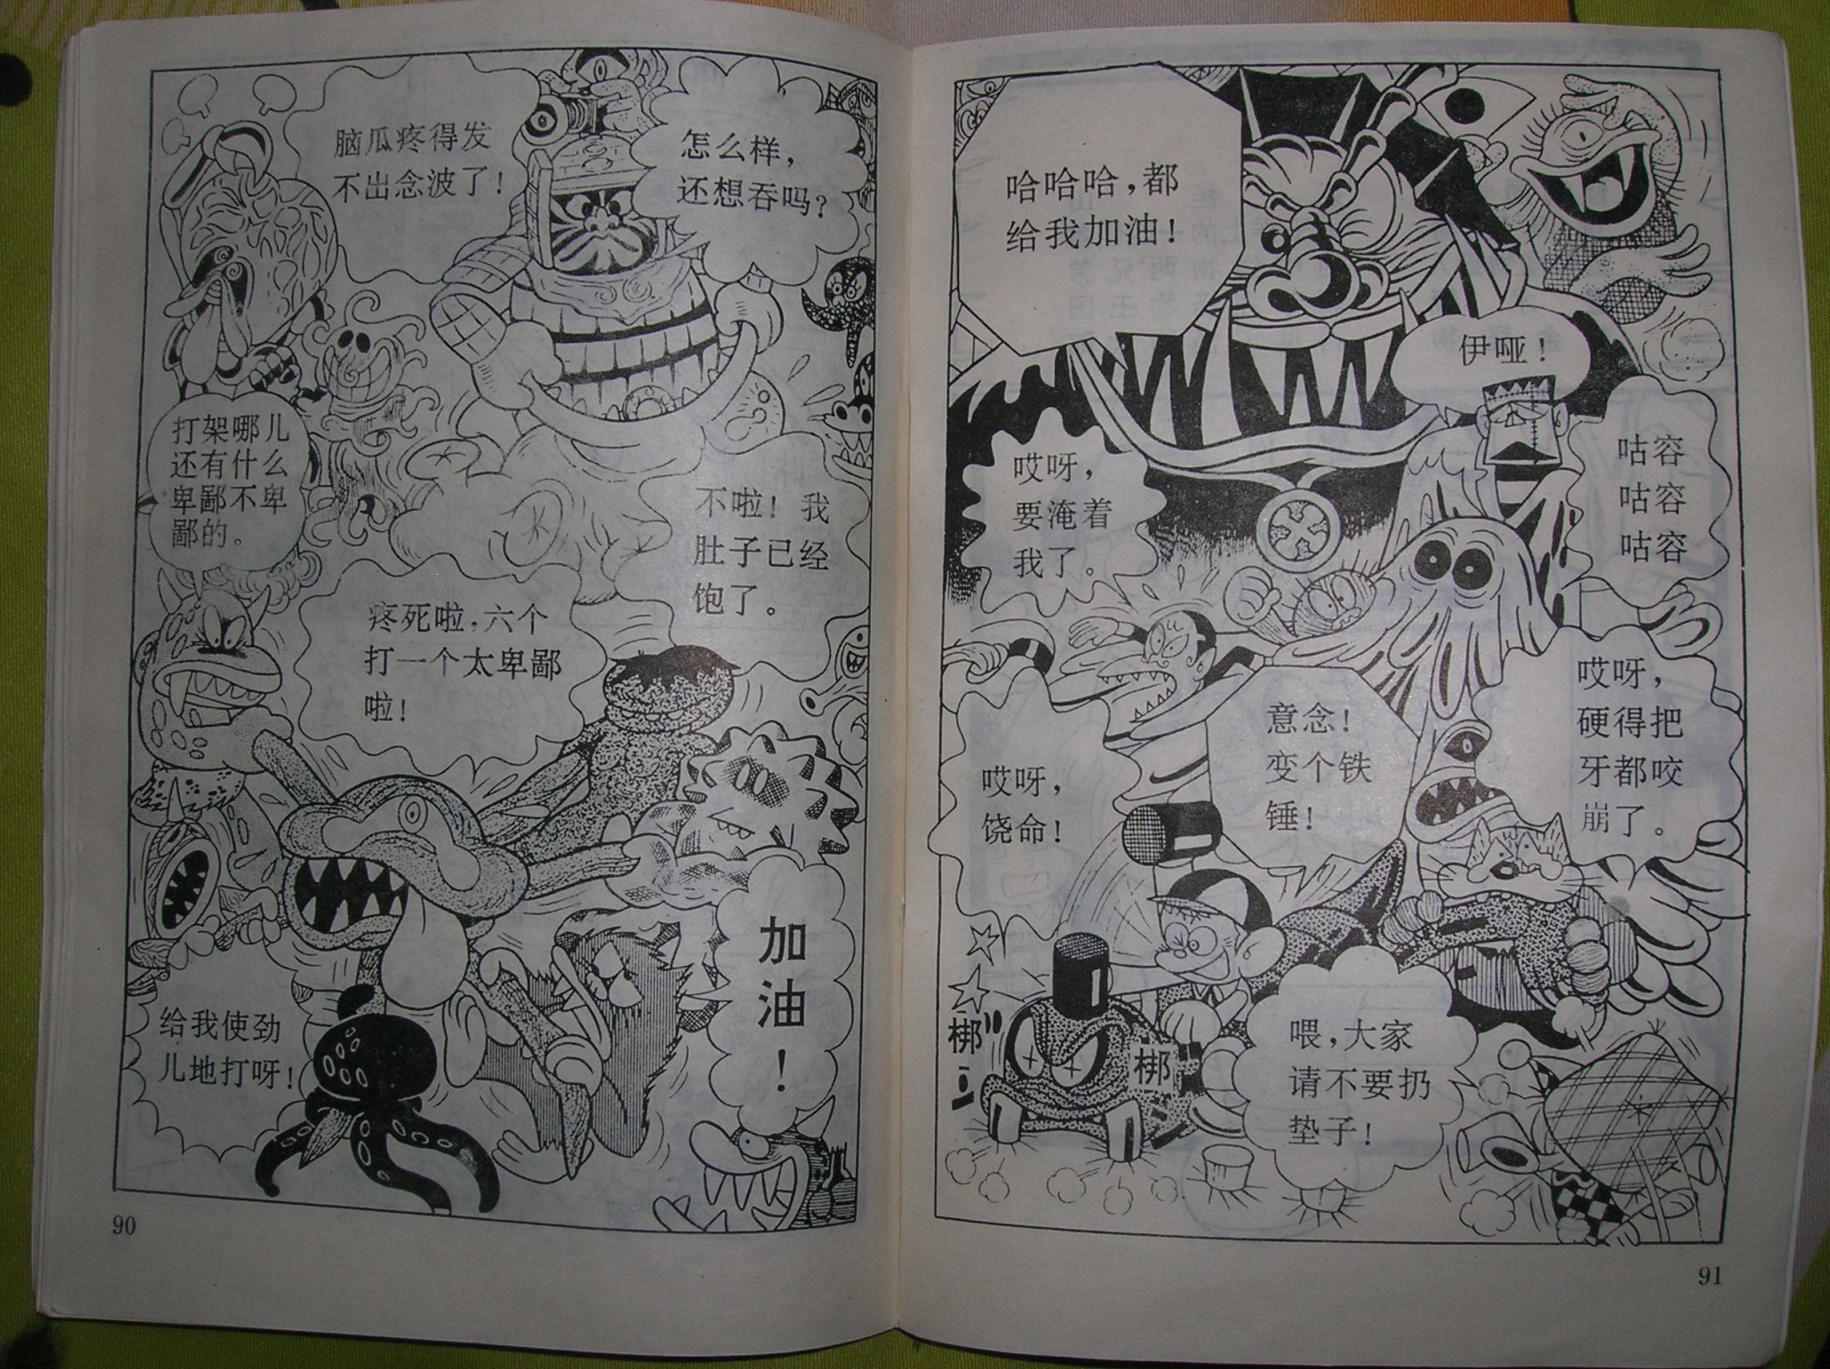 脑瓜疼得发
不出念波了！
怎么样，
还想吞吗？
打架哪儿
还有什么
卑鄙不卑
鄙的。
不啦！我
肚子已经
饱了。
疼死啦，六个
打一个太卑鄙
啦！
加
油
！
给我使劲
儿地打呀！
90
哈哈哈，都
给我加油！
伊哑！
哎呀，
要淹着
我了。
咕容
咕容
咕容
哎呀，
硬得把
牙都咬
崩了。
意念！
变个铁
锤！
哎呀，
饶命！
梆
梆
喂，大家
请不要扔
垫子！
91